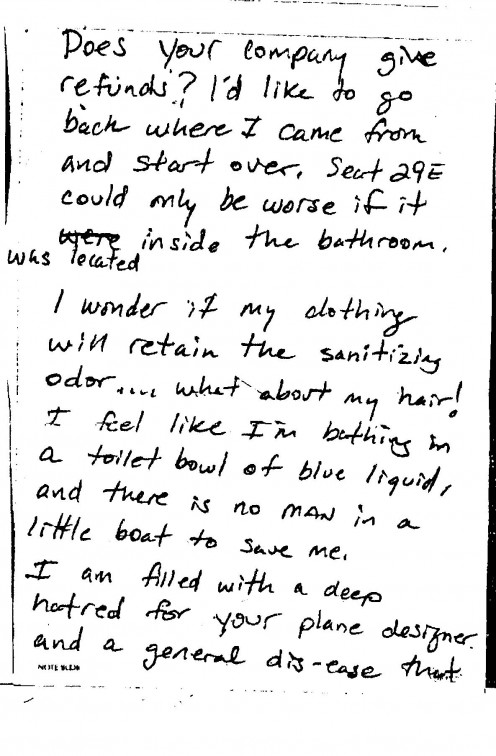 Does your company give
refunds? I'd like to go
back where I came from
and start over. Seat 29E
could only be worse if it
were inside the bathroom.
was located
I wonder if my clothing
will retain the sanitizing
odor.... what about my hair!
I feel like I'm bathing in
a toilet bowl of blue liquid,
and there is no MAN in a
little boat to save me.
I am filled with a deep
hatred for your plane designer
and a general dis-ease that